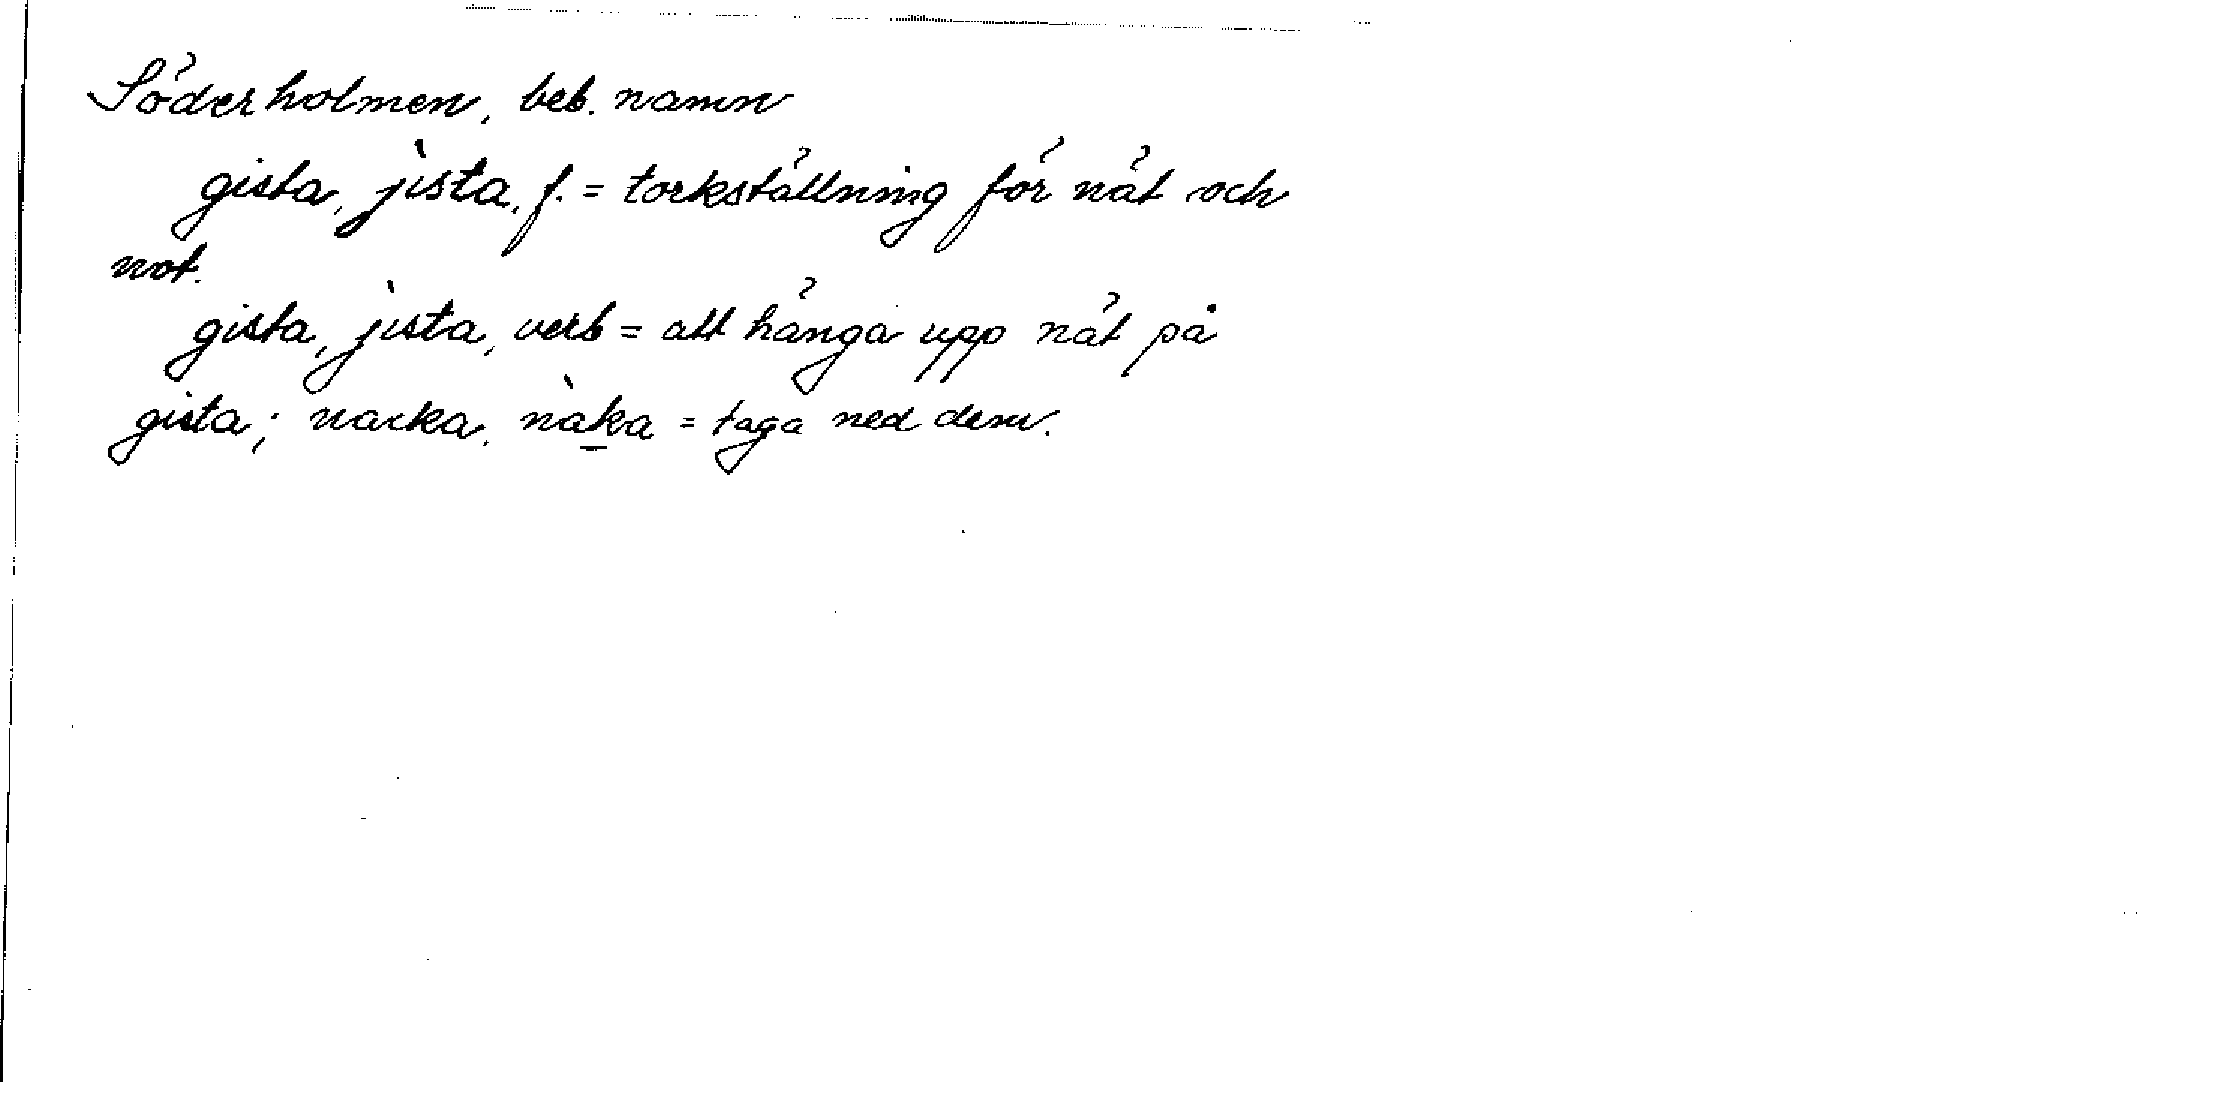 Söderholmen, beb. namn
gista, jìsta, f. = torkställning för nät och
not.
gista, jìsta, verb = att hänga upp nät på
gista; nacka, nàk̲a = taga ned dem.